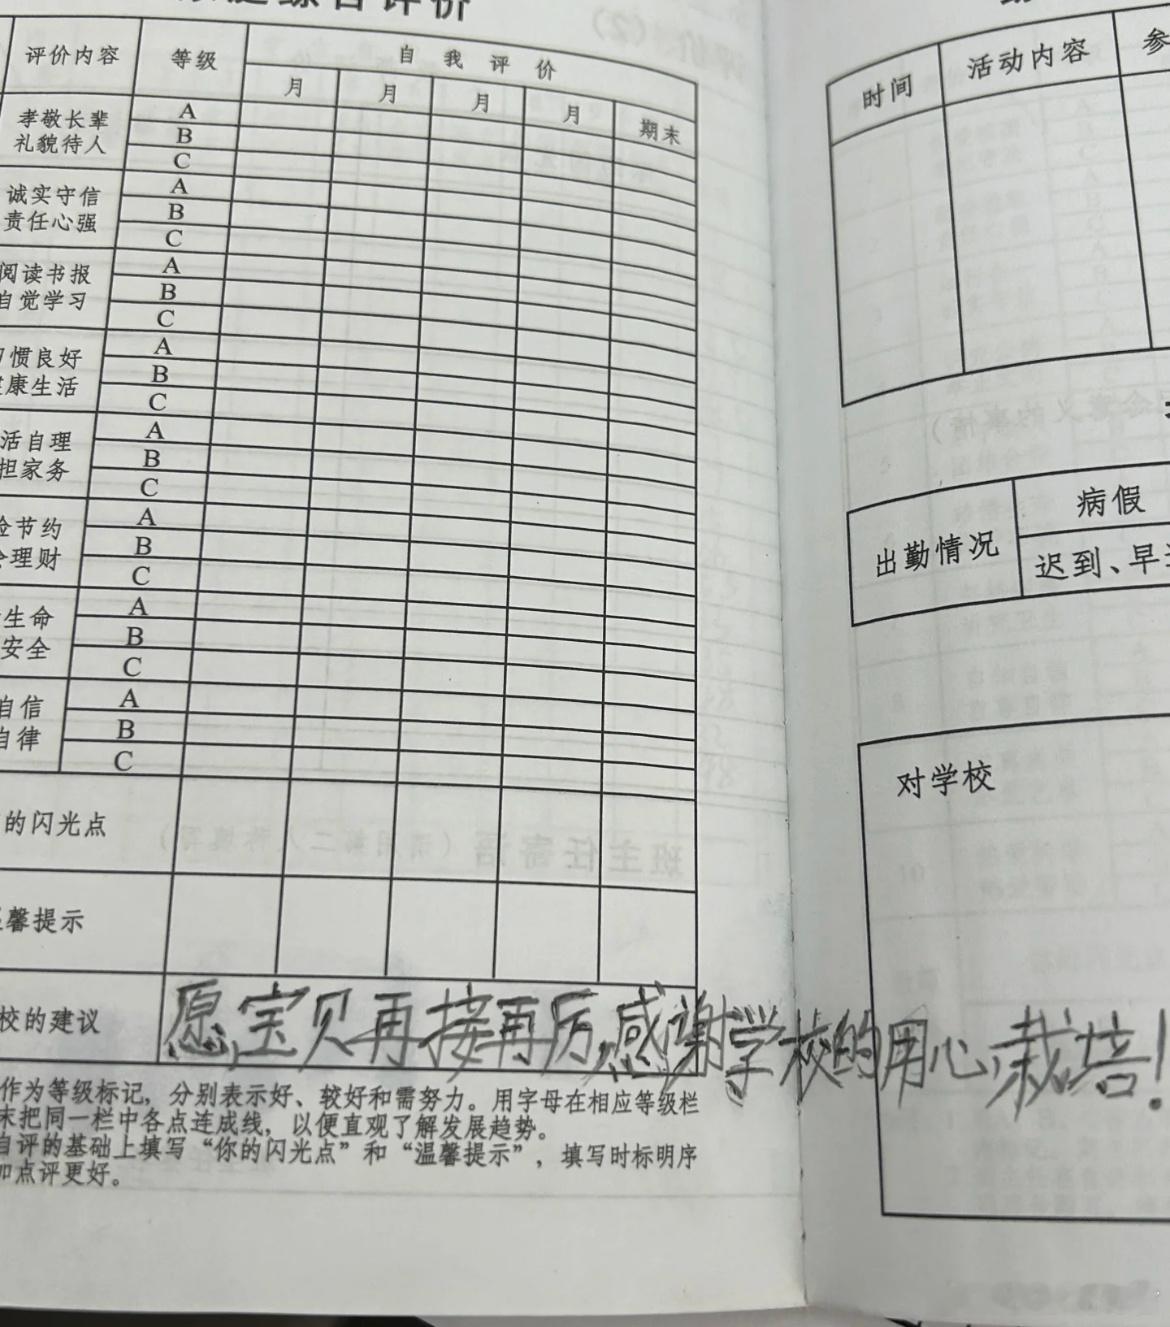 综合评价
评价内容 等级 自我评价
月 月 月 月 期末
孝敬长辈
礼貌待人
A
B
C
诚实守信
责任心强
A
B
C
阅读书报
自觉学习
A
B
C
惯良好
康生活
A
B
C
活自理
担家务
A
B
C
节约
理财
A
B
C
生命
安全
A
B
C
自信
自律
A
B
C
的闪光点
馨提示
校的建议
愿宝贝再接再厉,感谢学校的用心栽培!
作为等级标记，分别表示好、较好和需努力。用字母在相应等级栏
末把同一栏中各点连成线，以便直观了解发展趋势。
自评的基础上填写“你的闪光点”和“温馨提示”，填写时标明序
加点评更好。
时间 活动内容 参
出勤情况
病假
迟到、早
对学校